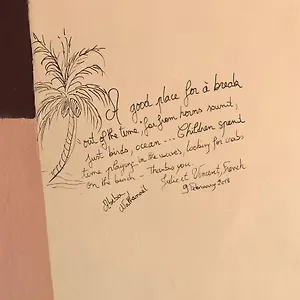 A good place for à break
"out of the time", far from horns sound,
just birds, ocean --- Children spend
time playing in the waves, looking for crabs
on the beach - Thanks you.
Julie et Vincent, French
9 February 2018
Nathanaël